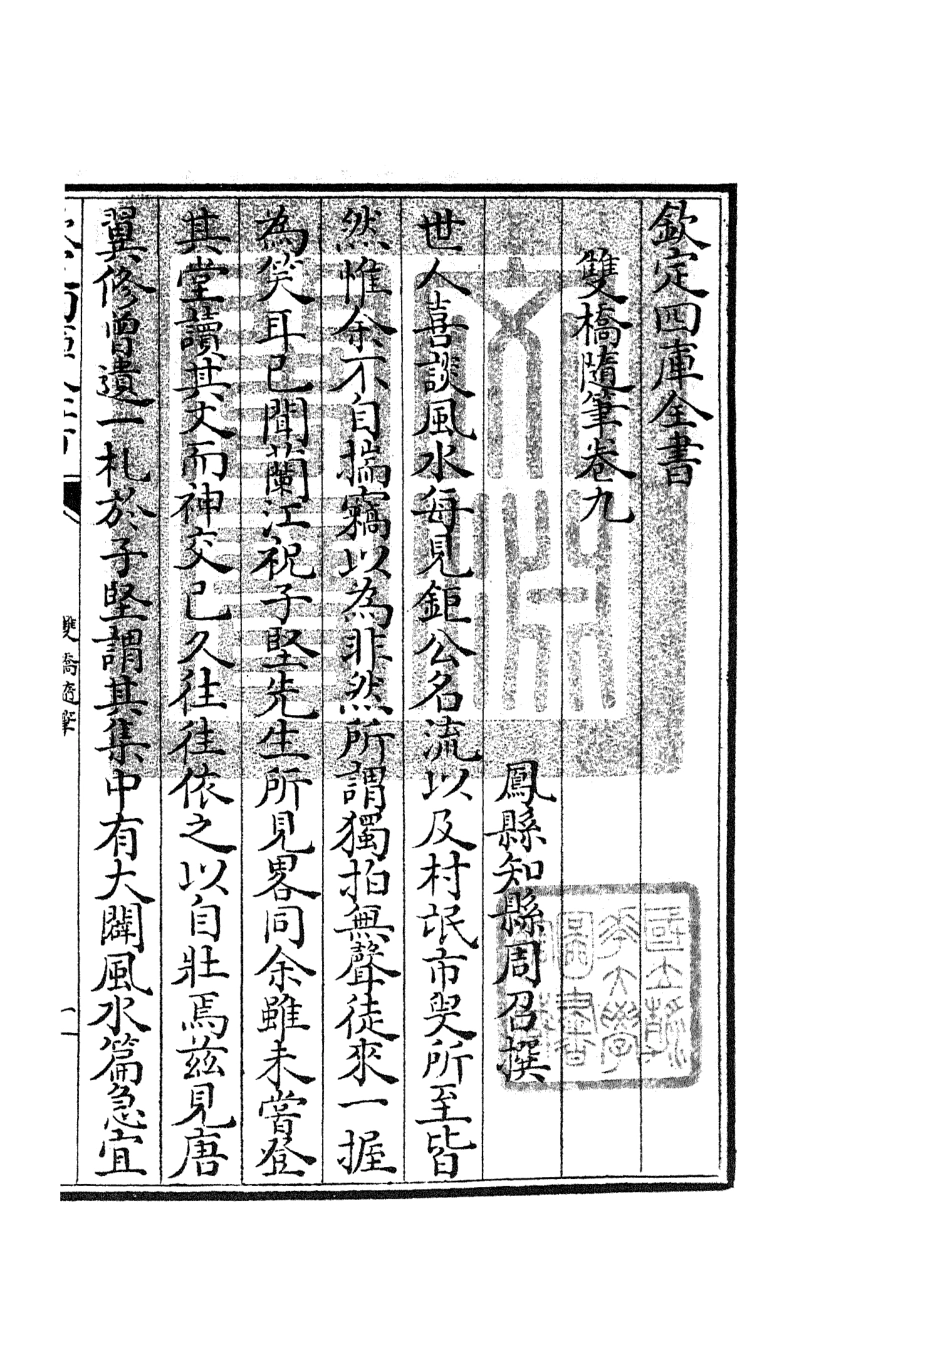 欽定四庫全書
雙橋隨筆卷九
鳳縣知縣周召撰
世人喜談風水每見鉅公名流以及村氓市叟所至皆
然惟余不自揣竊以為非然所謂獨拍無聲徒來一握
為笑耳已聞蘭江祝子堅先生所見畧同余雖未嘗登
其堂讀其文而神交已久往往依之以自壯焉茲見唐
翼修曾遺一札於子堅謂其集中有大闢風水篇急宜
雙橋隨筆